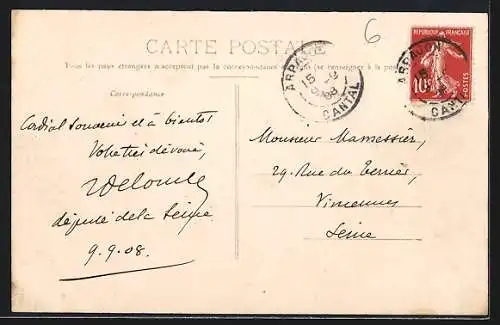 6
CARTE POSTALE
Tous les pays étrangers n'acceptent pas la correspondance au recto (se renseigner à la poste)
Correspondance
ARPAJON
CANTAL
RÉPUBLIQUE FRANÇAISE
10c
POSTES
ARPAJON
CANTAL
Cordial souvenir et à bientôt
Votre très dévoué,
député de la Seine
9.9.08.
Monsieur Mamessier,
29 Rue du Terrier,
Vincennes
Seine